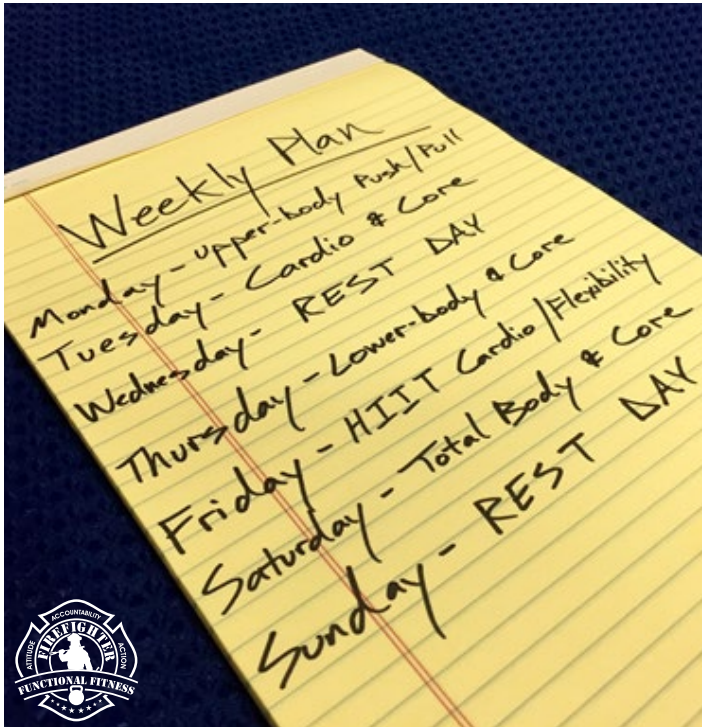 Weekly Plan
Monday - Upper-body Push/Pull
Tuesday - Cardio & Core
Wednesday - REST DAY
Thursday - Lower-body & Core
Friday - HIIT Cardio/Flexibility
Saturday - Total Body & Core
Sunday - REST DAY
ATTITUDE ACCOUNTABILITY ACTION
FIREFIGHTER
FUNCTIONAL FITNESS